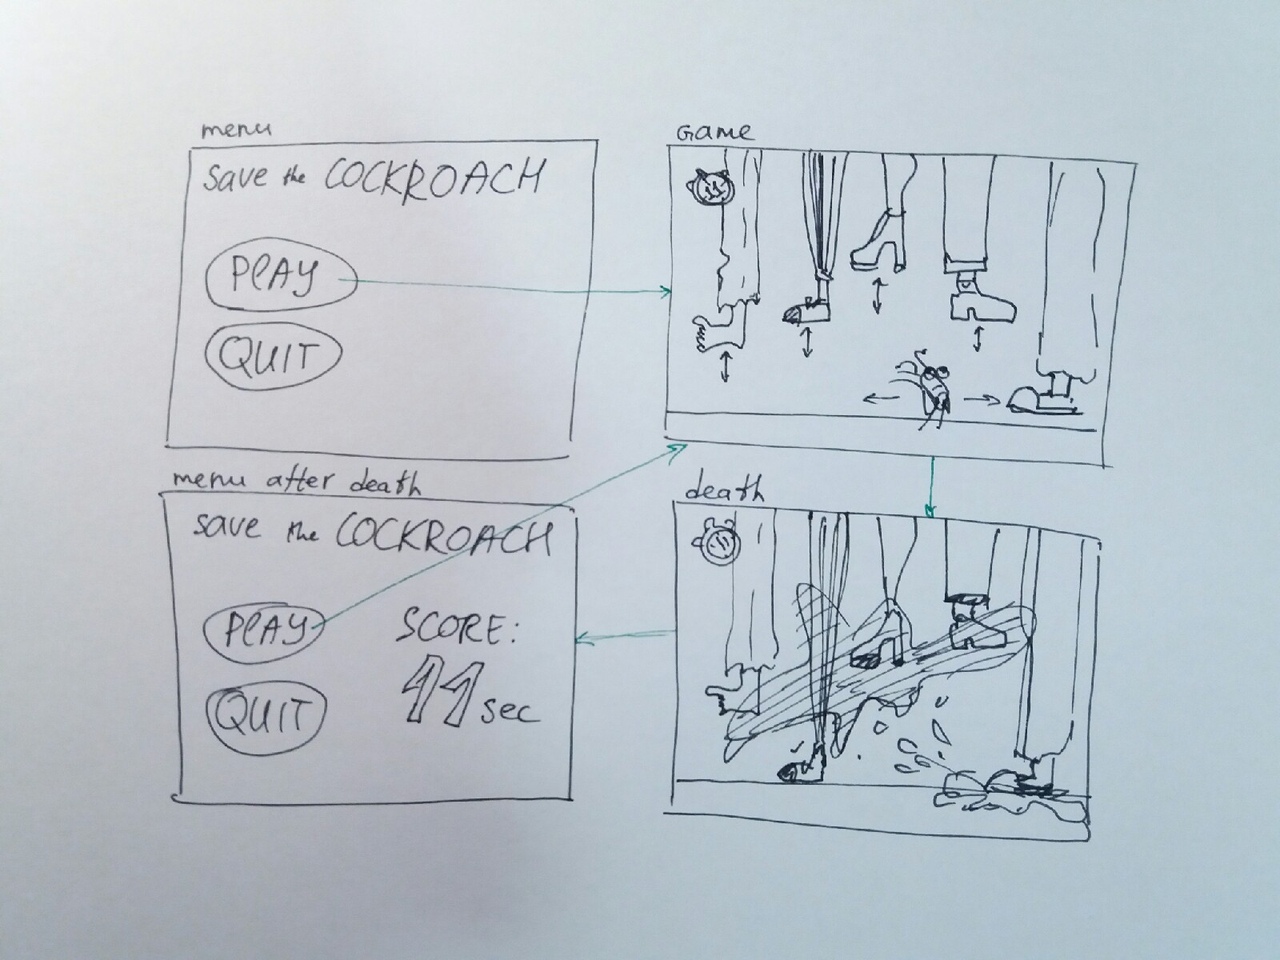 menu
save the COCKROACH
PLAY
QUIT
Game
menu after death
save the COCKROACH
PLAY
SCORE:
11 sec
QUIT
death